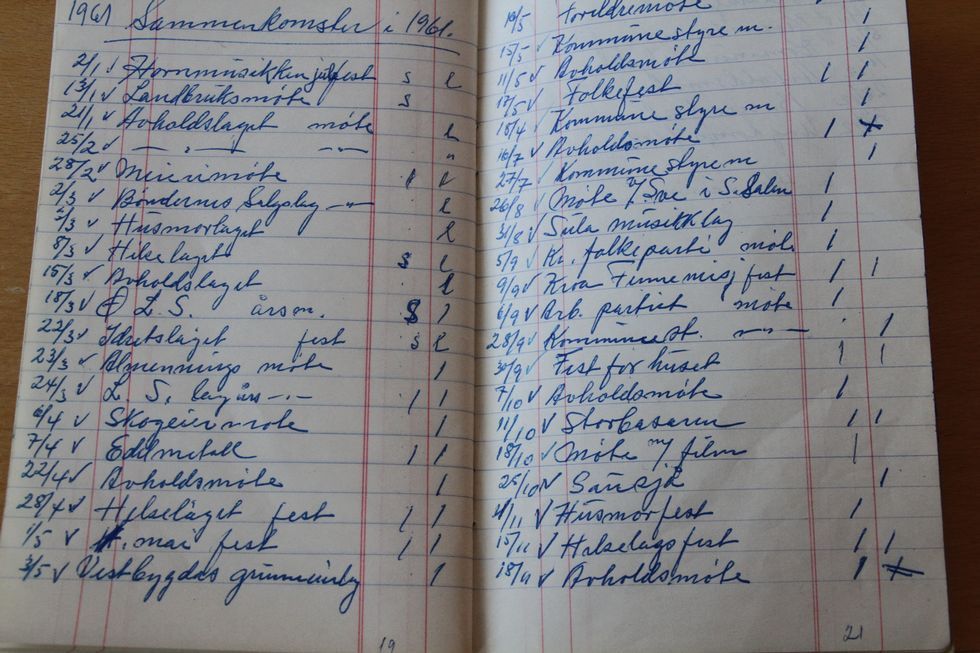 1961 Sammenkomster i 1961.
2/1 ✓ Hornmusikken julefest s l
13/1 ✓ Landbruksmøte s
21/1 ✓ Avholdslaget møte l
25/2 ✓ — „ — — „ — "
28/2 ✓ Meierimøte l l
2/3 ✓ Bøndernes Salgslag — „ — l
3/3 ✓ Husmorlaget l
8/3 ✓ Helselaget s l
15/3 ✓ Avholdslaget l
18/3 ✓ L. S. årsm. S l
22/3 ✓ Idretslaget fest s l
23/3 ✓ Almennings møte l
24/3 ✓ L. S. lagårs - „ - l l
6/4 ✓ Skogeiermøte l
7/4 ✓ Edelmetall l l
22/4 ✓ Avholdsmøte l
28/4 ✓ Helselaget fest l l
1/5 ✓ mai fest l l
3/5 ✓ Vestbygdas grunneierlag l
19
10/5 Foreldremøte l
15/5 ✓ Kommunestyre m. l
11/5 ✓ Avholdsmøte l
17/5 ✓ Folkefest l l
15/4 ✓ Kommune styre m l
16/7 ✓ Avholdsmøte l
27/7 ✓ Kommunestyrem l
26/8 ✓ Møte i S. Salen l
31/8 ✓ Sula musikklag l
5/9 ✓ Kr. folkeparti møte l
9/9 ✓ Kroa Finnemisj fest l l
6/9 ✓ Arb. partiet møte l
28/9 ✓ Kommunest. - „ - l
30/9 ✓ Fest for huset l l
7/10 ✓ Avholdsmøte l
11/10 ✓ Storbasaren l l
18/10 ✓ Møte m/ film l
25/10 ✓ Sansjå l
4/11 ✓ Husmorfest l
15/11 ✓ Helselagsfest l l
18/11 ✓ Avholdsmøte l
21